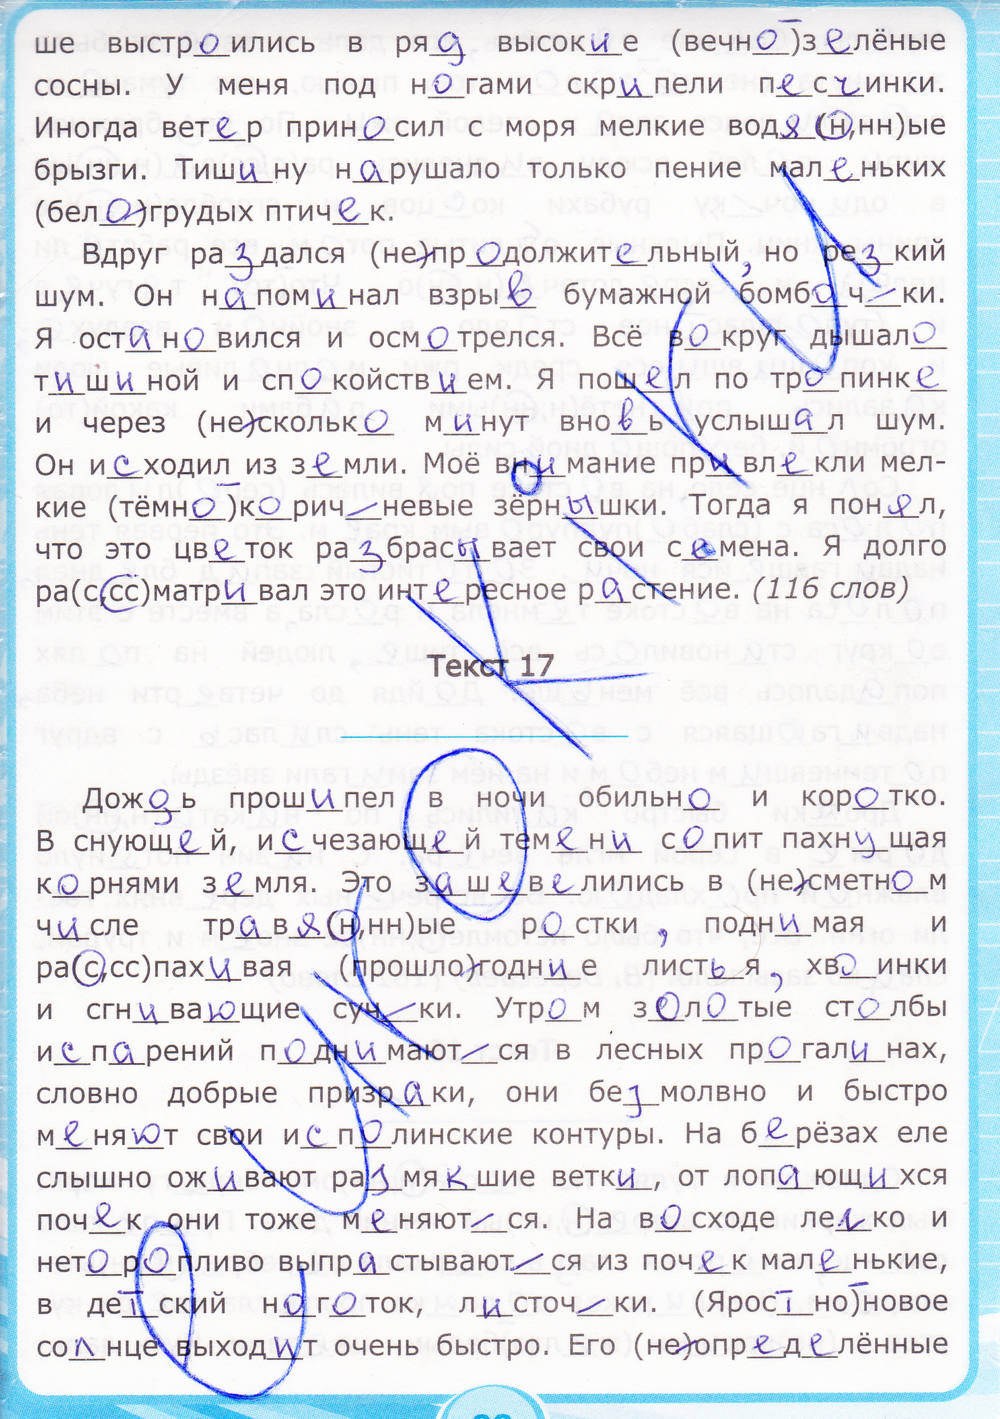 ше выстроились в ряд высокие (вечно-)зелёные
сосны. У меня под ногами скрипели песчинки.
Иногда ветер приносил с моря мелкие водя(н,нн)ые
брызги. Тишину нарушало только пение маленьких
(бело)грудых птичек.
Вдруг раздался (не)продолжительный, но резкий
шум. Он напоминал взрыв бумажной бомбочки.
Я остановился и осмотрелся. Всё вокруг дышало
тишиной и спокойствием. Я пошел по тропинке
и через (не)сколько минут вновь услышал шум.
Он исходил из земли. Моё внимание привлекли мел-
кие (тёмно-)коричневые зёрнышки. Тогда я понял,
что это цветок разбрасывает свои семена. Я долго
ра(с,сс)матривал это интересное растение. (116 слов)
Текст 17
Дождь прошипел в ночи обильно и коротко.
В снующей, исчезающей темени сопит пахнущая
корнями земля. Это зашевелились в (не)сметном
числе травя(н,нн)ые ростки, поднимая и
ра(с,сс)пахивая (прошло)годние листья, хвоинки
и сгнивающие сучки. Утром золотые столбы
испарений поднимаются в лесных прогалинах,
словно добрые призраки, они безмолвно и быстро
меняют свои исполинские контуры. На берёзах еле
слышно оживают размякшие ветки, от лопающихся
почек они тоже меняются. На восходе легко и
неторопливо выпрастываются из почек маленькие,
в детский ноготок, листочки. (Яростно)новое
солнце выходит очень быстро. Его (не)определённые